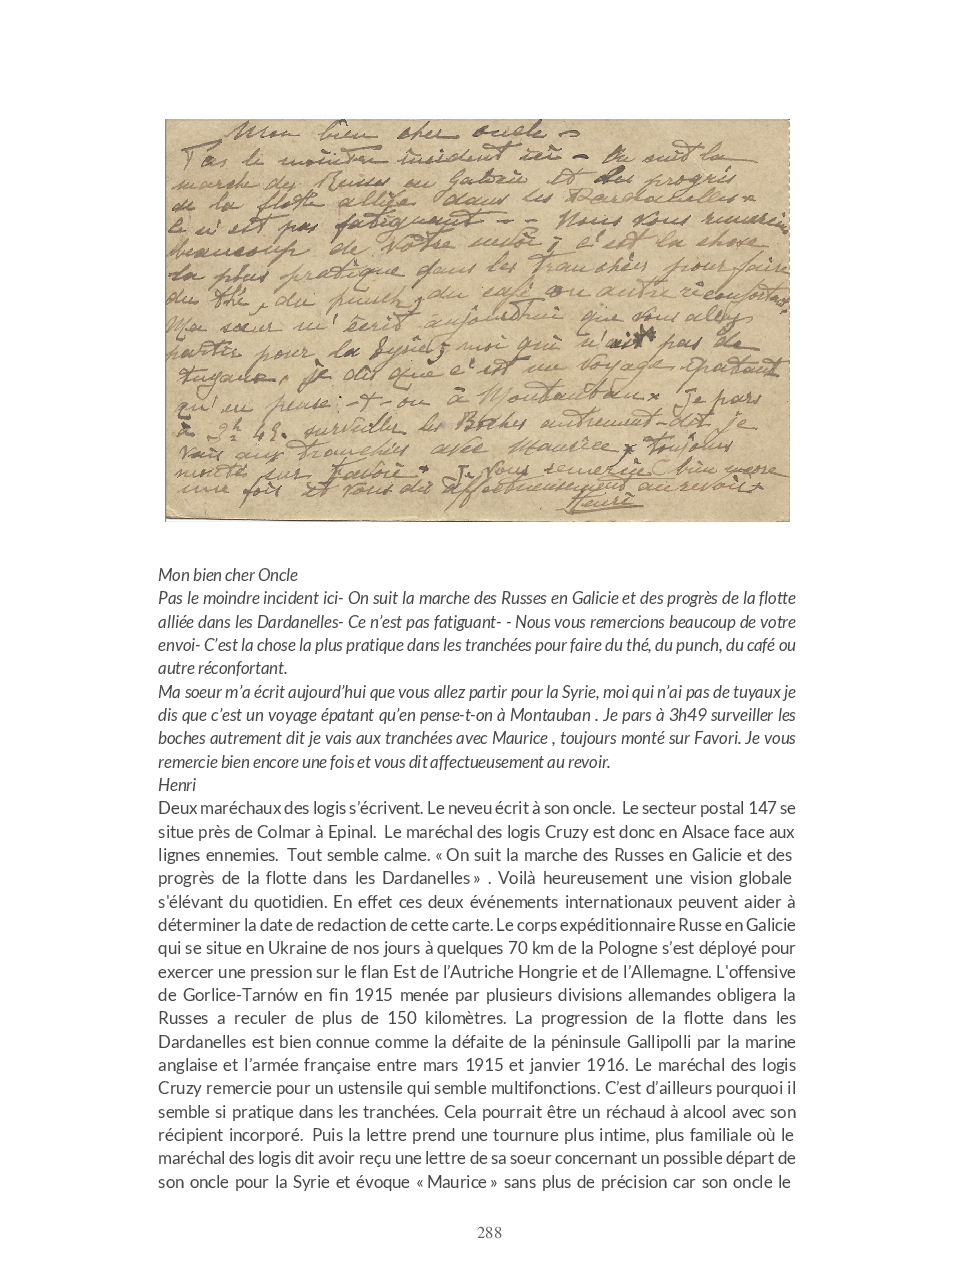 Mon bien cher oncle -
Pas le moindre incident ici - On suit la
marche des Russes en Galicie et des progrès
de la flotte alliée dans les Dardanelles -
Ce n'est pas fatiguant - - Nous vous remercions
beaucoup de votre envoi ; c'est la chose
la plus pratique dans les tranchées pour faire
du thé, du punch, du café ou autre réconfortant.
Ma sœur m'écrit aujourd'hui que vous allez
partir pour la Syrie ; moi qui n'ai pas de
tuyaux, je dis que c'est un voyage épatant
qu'en pense-t-on à Montauban. Je pars
à 3h 49. surveiller les Boches autrement-dit je
vais aux tranchées avec Maurice, toujours
monté sur Favori. Je vous remercie bien encore
une fois et vous dit affectueusement au revoir.
Henri
Mon bien cher Oncle
Pas le moindre incident ici- On suit la marche des Russes en Galicie et des progrès de la flotte
alliée dans les Dardanelles- Ce n’est pas fatiguant- - Nous vous remercions beaucoup de votre
envoi- C’est la chose la plus pratique dans les tranchées pour faire du thé, du punch, du café ou
autre réconfortant.
Ma soeur m’a écrit aujourd’hui que vous allez partir pour la Syrie, moi qui n’ai pas de tuyaux je
dis que c’est un voyage épatant qu’en pense-t-on à Montauban . Je pars à 3h49 surveiller les
boches autrement dit je vais aux tranchées avec Maurice , toujours monté sur Favori. Je vous
remercie bien encore une fois et vous dit affectueusement au revoir.
Henri
Deux maréchaux des logis s’écrivent. Le neveu écrit à son oncle. Le secteur postal 147 se
situe près de Colmar à Epinal. Le maréchal des logis Cruzy est donc en Alsace face aux
lignes ennemies. Tout semble calme. « On suit la marche des Russes en Galicie et des
progrès de la flotte dans les Dardanelles » . Voilà heureusement une vision globale
s'élévant du quotidien. En effet ces deux événements internationaux peuvent aider à
déterminer la date de redaction de cette carte. Le corps expéditionnaire Russe en Galicie
qui se situe en Ukraine de nos jours à quelques 70 km de la Pologne s’est déployé pour
exercer une pression sur le flan Est de l’Autriche Hongrie et de l’Allemagne. L'offensive
de Gorlice-Tarnów en fin 1915 menée par plusieurs divisions allemandes obligera la
Russes a reculer de plus de 150 kilomètres. La progression de la flotte dans les
Dardanelles est bien connue comme la défaite de la péninsule Gallipolli par la marine
anglaise et l’armée française entre mars 1915 et janvier 1916. Le maréchal des logis
Cruzy remercie pour un ustensile qui semble multifonctions. C’est d’ailleurs pourquoi il
semble si pratique dans les tranchées. Cela pourrait être un réchaud à alcool avec son
récipient incorporé. Puis la lettre prend une tournure plus intime, plus familiale où le
maréchal des logis dit avoir reçu une lettre de sa soeur concernant un possible départ de
son oncle pour la Syrie et évoque « Maurice » sans plus de précision car son oncle le
288